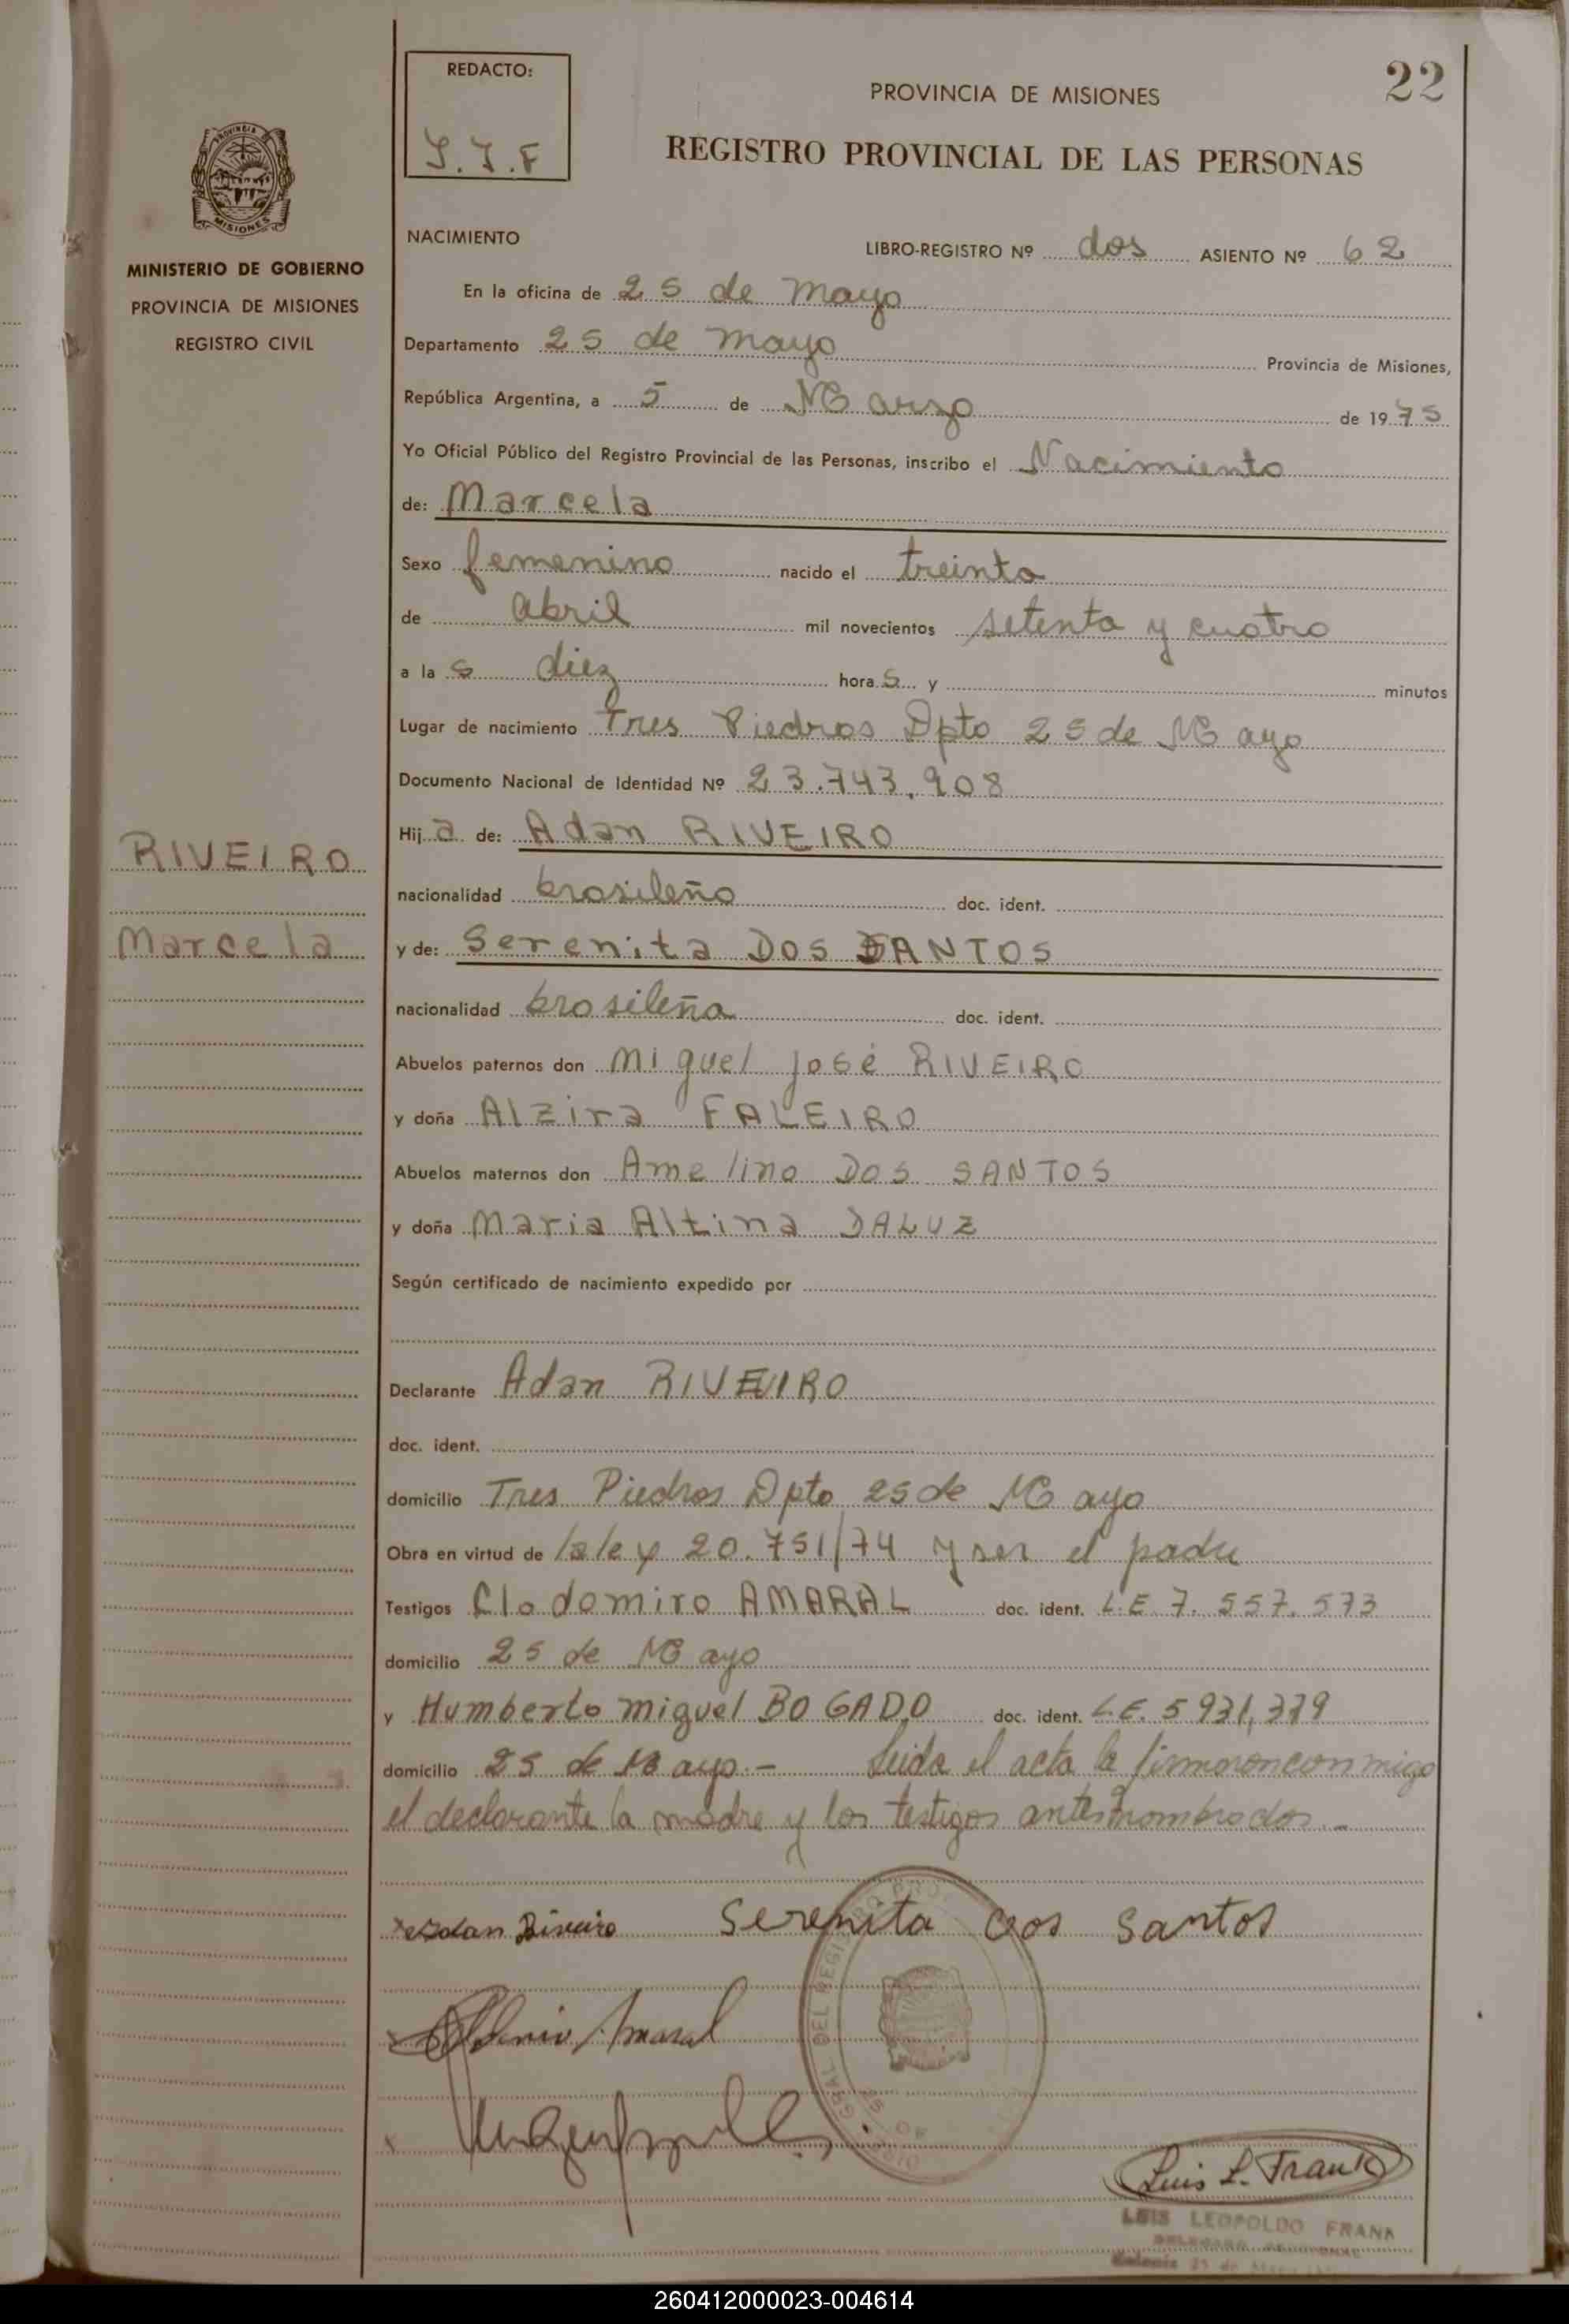 22
REDACTO:
PROVINCIA DE MISIONES
REGISTRO PROVINCIAL DE LAS PERSONAS
MINISTERIO DE GOBIERNO
PROVINCIA DE MISIONES
REGISTRO CIVIL
NACIMIENTO
LIBRO-REGISTRO Nº dos ASIENTO Nº 62
En la oficina de 25 de mayo
Departamento 25 de mayo Provincia de Misiones,
República Argentina, a 5 de Marzo de 1975
Yo Oficial Público del Registro Provincial de las Personas, inscribo el Nacimiento
de: Marcela
Sexo femenino nacido el treinta
de abril mil novecientos setenta y cuatro
a las diez horas y minutos
Lugar de nacimiento Tres Piedras Dpto 25 de Mayo
Documento Nacional de Identidad Nº 23.743.908
Hija de: Adan RIVEIRO
RIVEIRO
nacionalidad brasileño doc. ident.
Marcela
y de: Serenita DOS SANTOS
nacionalidad brasileña doc. ident.
Abuelos paternos don Miguel José RIVEIRO
y doña Alzira FALEIRO
Abuelos maternos don Amelino DOS SANTOS
y doña Maria Altina DALUZ
Según certificado de nacimiento expedido por
Declarante Adan RIVEIRO
doc. ident.
domicilio Tres Piedras Dpto 25 de Mayo
Obra en virtud de la ley 20.751/74 y ser el padre
Testigos Clodomiro AMARAL doc. ident. L.E. 7.557.573
domicilio 25 de Mayo
y Humberto Miguel BOGADO doc. ident. L.E. 5931,379
domicilio 25 de Mayo.- Leida el acta la firmaron conmigo
el declarante la madre y los testigos antes nombrados.-
Adan Riveiro Serenita dos santos
Amaral
Luis L. Frank
LUIS LEOPOLDO FRANK
260412000023-004614